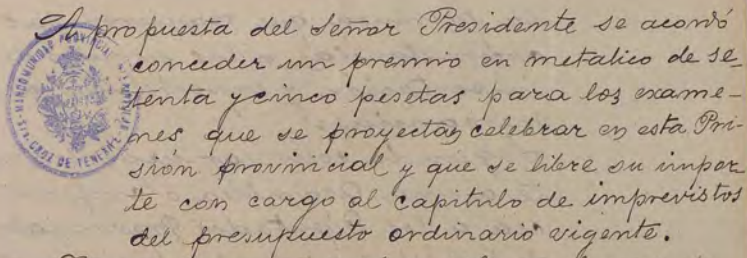 A propuesta del Señor Presidente se acordó
conceder un premio en metalico de se-
tenta y cinco pesetas para los exame-
nes que se proyectan celebrar en esta Pri-
sión provincial y que se libre su impor-
te con cargo al capitulo de imprevistos
del presupuesto ordinario vigente.
MANCOMUNIDAD PROVINCIAL
CRUZ DE TENERIFE